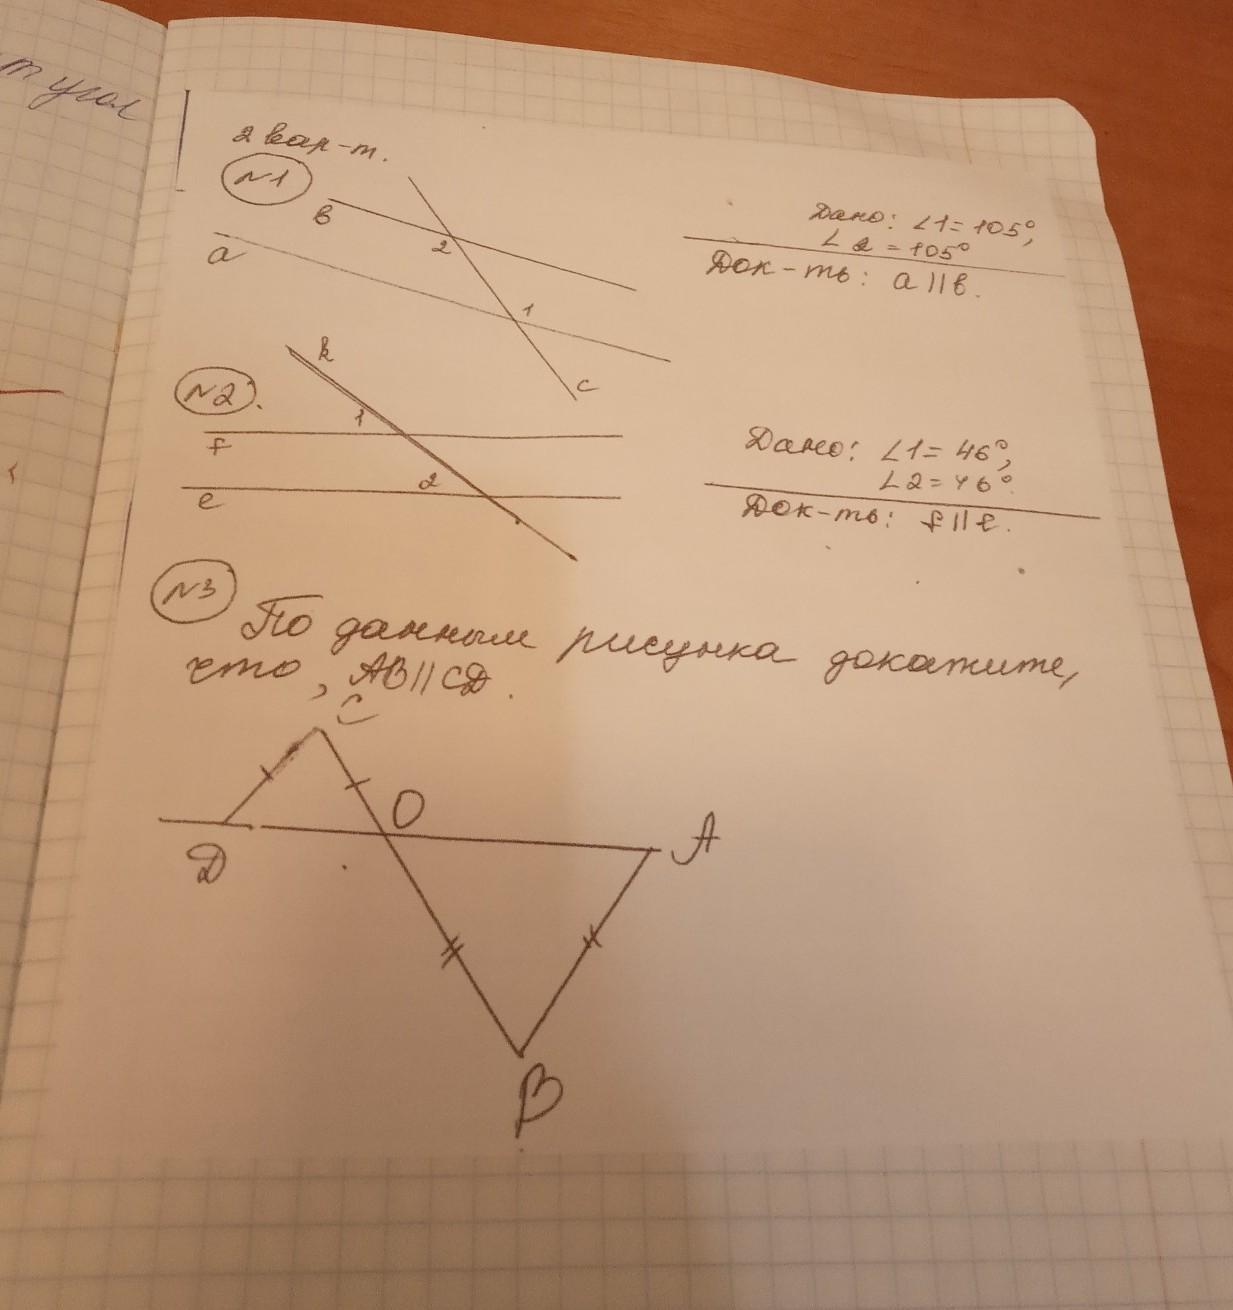 т угол
2 вар-т.
N1
в
a
2
1
c
Дано: ∠1=105°,
∠2=105°
Док-ть: a||в.
N2.
k
1
f
2
e
Дано: ∠1=46°,
∠2=46°.
Док-ть: f||e.
N3
По данным рисунка докажите,
что, AB||CD.
C
O
A
D
B